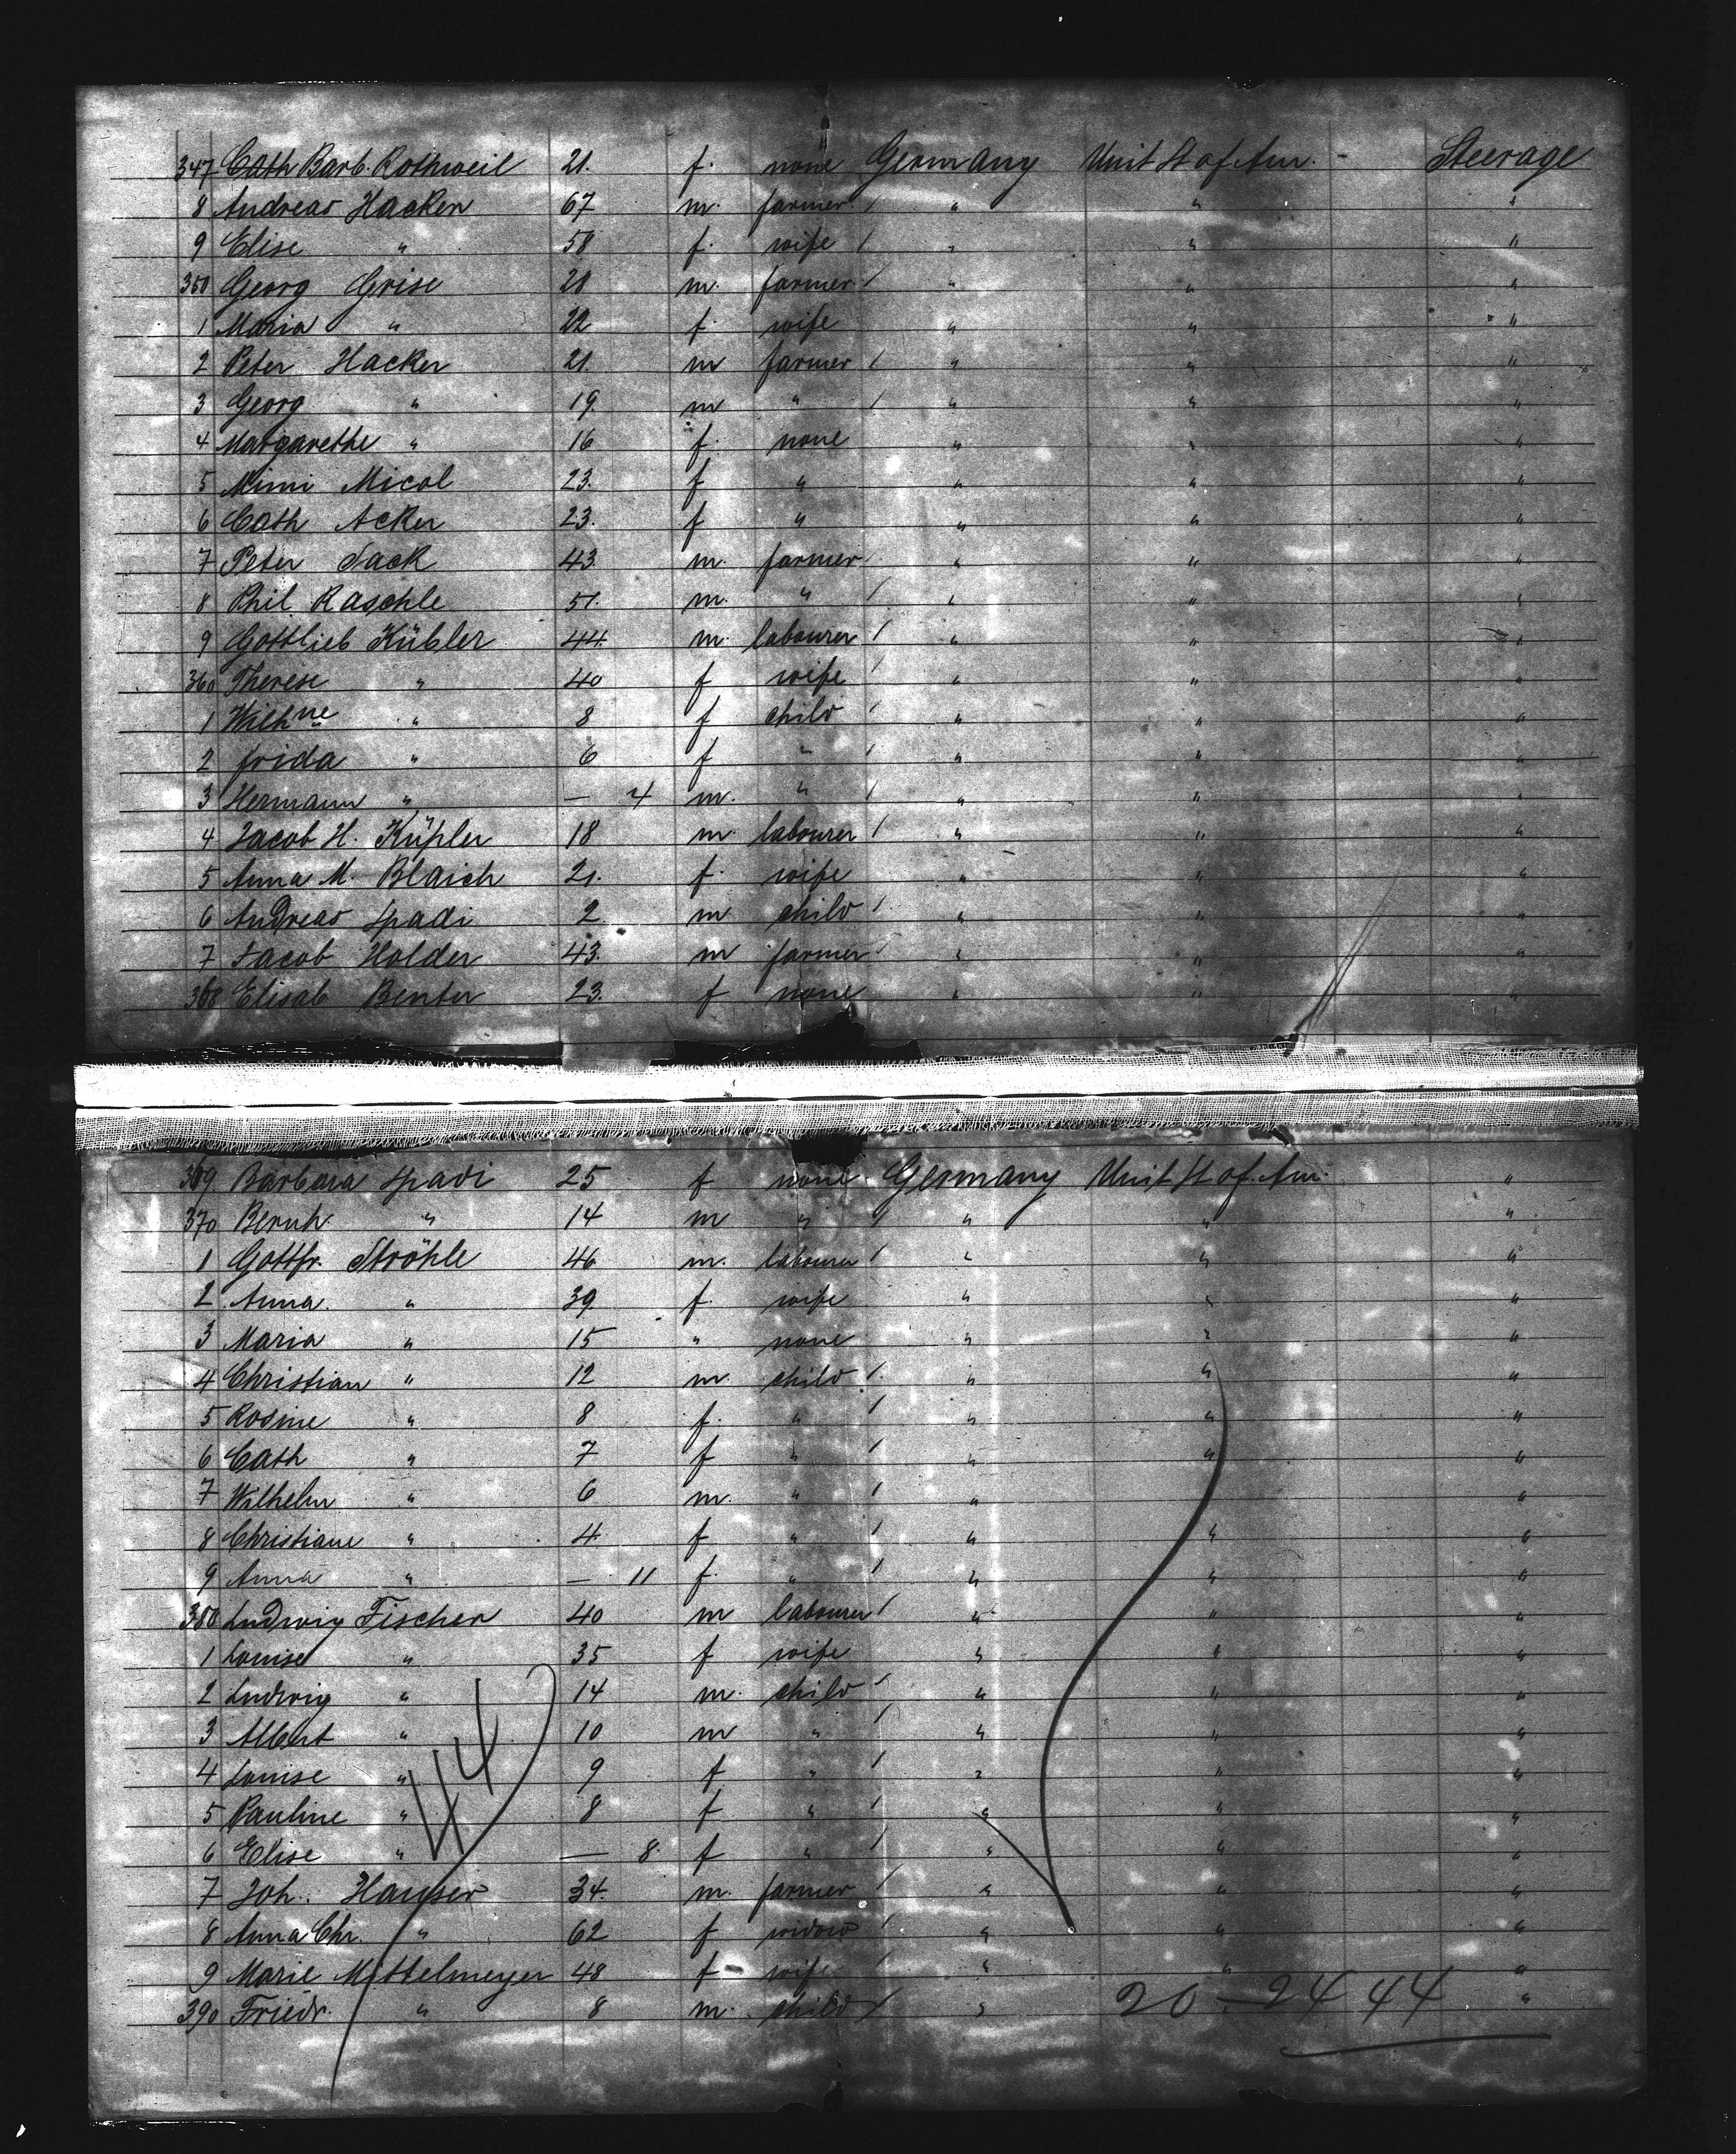 347 Cath Barb. Rothweil 21. f. none Germany Unit St of Am. - Steerage
8 Andreas Hacker 67 m. farmer / " " "
9 Elise " 58 f. wife / " " "
350 Georg Grise 28 m. farmer / " " "
1 Maria " 22 f. wife " " "
2 Peter Hacker 21. m farmer / " " "
3 Georg " 19. m " / " " "
4 Margarethe " 16 f. none " " "
5 Mimi Micol 23. f " " " "
6 Cath Acker 23. f " " " "
7 Peter Sack 43 m. farmer / " " "
8 Phil Raschle 51. m. " / " " "
9 Gottlieb Kübler 44. m. labourer / " " "
360 Therese " 40 f wife / " " "
1 Wilhne " 8 f child / " " "
2 Frida " 6 f " / " " "
3 Hermann " — 4 m. " / " " "
4 Jacob H. Küpler 18 m. labourer / " " "
5 Anna M. Blaich 21. f. wife " " "
6 Andreas Spadi 2 m child / " " "
7 Jacob Holder 43. m farmer / " " "
368 Elisab Benter 23. f none " " "
369 Barbara Spadi 25 f none Germany Unit St of Am. "
370 Bernh. " 14 m " / " " "
1 Gottfr. Ströhle 46 m. labourer / " " "
2 Anna. " 39 f. wife " " "
3 Maria " 15 " none " " "
4 Christian " 12 m. child / " " "
5 Rosine " 8 f. " / " " "
6 Cath " 7 f " / " " "
7 Wilhelm " 6 m. " / " "
8 Christiane " 4 f " / " " "
9 Anna " — 11 f. " / " " "
380 Ludwig Fischer 40 m labourer / " " "
1 Louise " 35 f wife " " "
2 Ludwig " 14 m. child / " " "
3 Albert " 10 m " / " " "
4 Louise " 9 f " / " " "
5 Pauline " 8 f " / " " "
6 Elise " — 8. f " / " " "
7 Joh. Hauser 34. m. farmer / " " "
8 Anna Chr. " 62 f widow / " " "
9 Marie Mittelmeyer 48 f wife / " " "
390 Friedr. " 8 m. child / " "
44
20 — 24 44